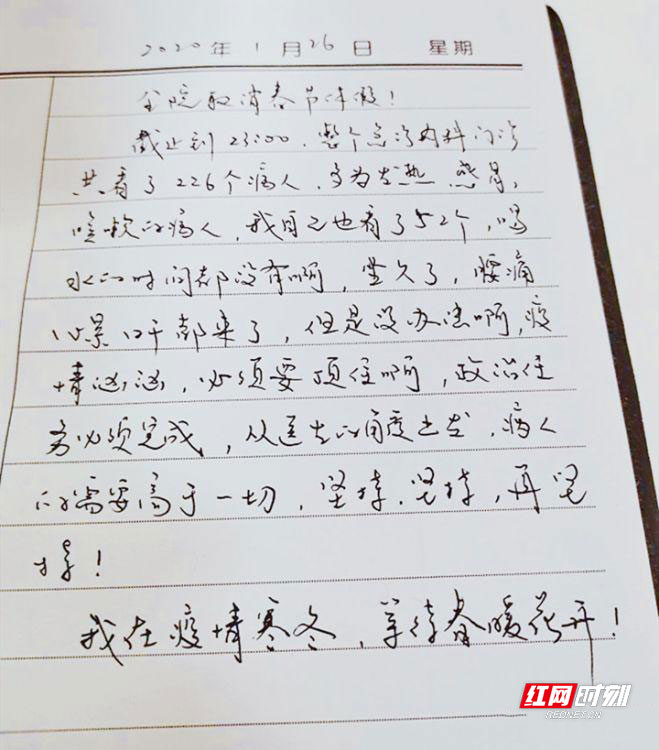 2020年1月26日 星期
全院取消春节休假!
截止到23:00,整个急诊内科门诊
共看了226个病人,多为发热,感冒,
咳嗽的病人,我自己也看了52个,喝
水的时间都没有啊,坐久了,腰痛
心累口干都来了,但是没办法啊,疫
情汹汹,必须要顶住啊,政治任
务必须完成,从医生的角度出发,病人
的需要高于一切,坚持,坚持,再坚
持!
我在疫情寒冬,等待春暖花开!
红网时刻
REDNET.CN